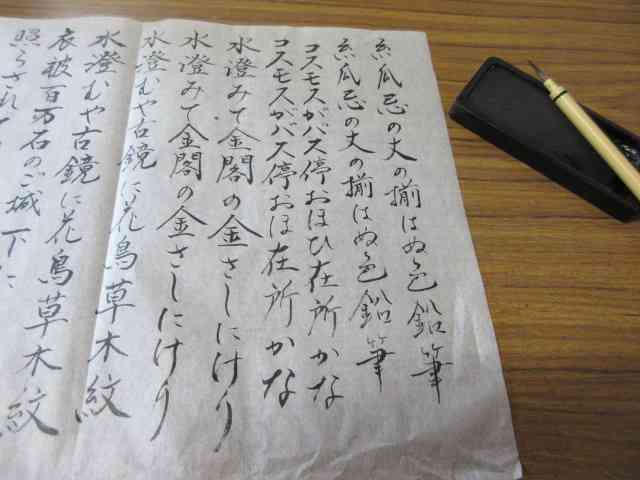 糸瓜忌の丈の揃はぬ色鉛筆
糸瓜忌の丈の揃はぬ色鉛筆
コスモスがバス停おほひ在所かな
コスモスがバス停おほ在所かな
水澄みて金閣の金さしにけり
水澄みて金閣の金さしにけり
水澄むや古鏡に花鳥草木紋
水澄むや古鏡に花鳥草木紋
衣被百万石のご城下に
照らされて